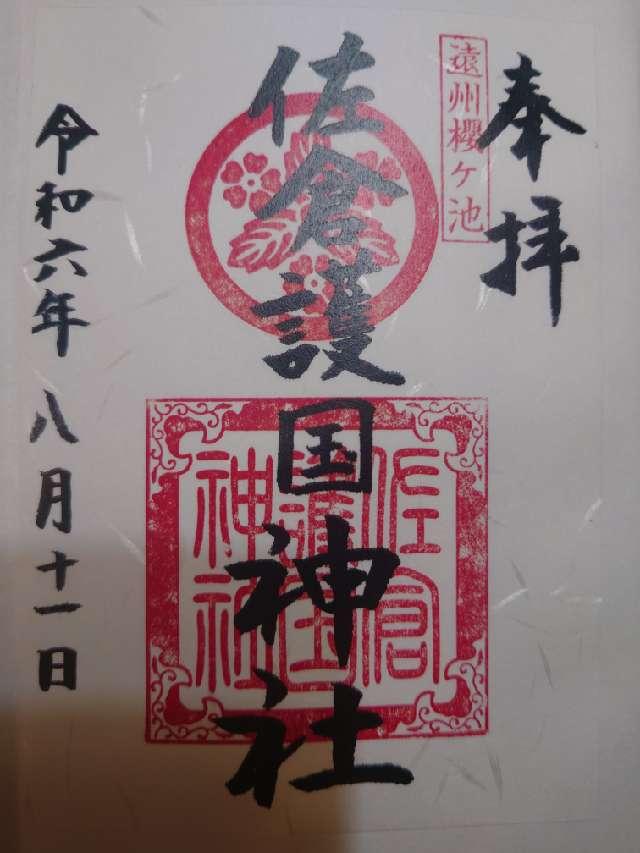 奉拝
遠州櫻ケ池
佐倉護国神社
佐倉
護国
神社
令和六年八月十一日